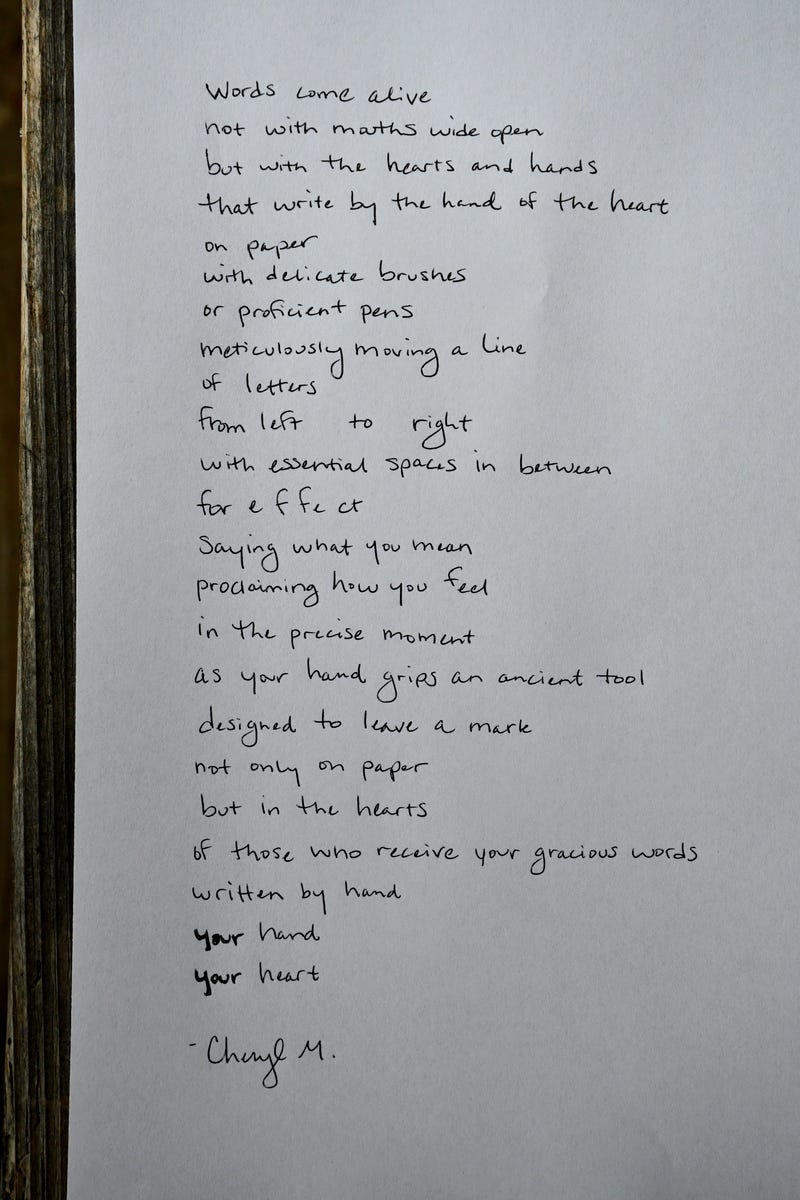 Words come alive
not with mouths wide open
but with the hearts and hands
that write by the hand of the heart
on paper
with delicate brushes
or proficient pens
meticulously moving a line
of letters
from left to right
with essential spaces in between
for e f f e ct
Saying what you mean
proclaiming how you feel
in the precise moment
as your hand grips an ancient tool
designed to leave a mark
not only on paper
but in the hearts
of those who receive your gracious words
written by hand
your hand
your heart
- Cheryl M.